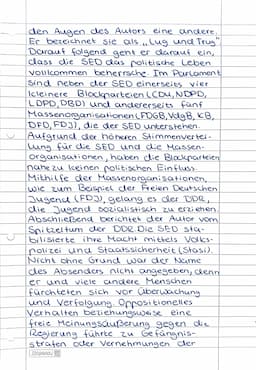 den Augen des Autors eine andere.
Er bezeichnet sie als „Lug und Trug"
Darauf folgend geht er darauf ein,
dass die SED das politische Leben
vollkommen beherrsche. Im Parlament
sind neben der SED einerseits vier
kleinere Blockparteien (CDU, NDPD,
LDPD, DBD) und andererseits fünf
Massenorganisationen (FDGB, VdgB, KB,
DFD, FDJ), die der SED unterstehen.
Aufgrund der höheren Stimmenvertei-
lung für die SED und die Massen-
organisationen, haben die Blockparteien
nahezu keinen politischen Einfluss.
Mithilfe der Massenorganisationen,
wie zum Beispiel der Freien Deutschen
Jugend (FDJ), gelang es der DDR,
die Jugend sozialistisch zu erziehen.
Abschließend berichtet der Autor vom
Spitzeltum der DDR. Die SED sta-
bilisierte ihre Macht mittels Volks-
polizei und Staatssicherheit (Stasi).
Nicht ohne Grund war der Name
des Absenders nicht angegeben, denn
er und viele andere Menschen
fürchteten sich vor Überwachung
und Verfolgung. Oppositionelles
Verhalten beziehungsweise eine
freie Meinungsäußerung gegen die
Regierung führte zu Gefängnis-
strafen oder Vernehmungen der